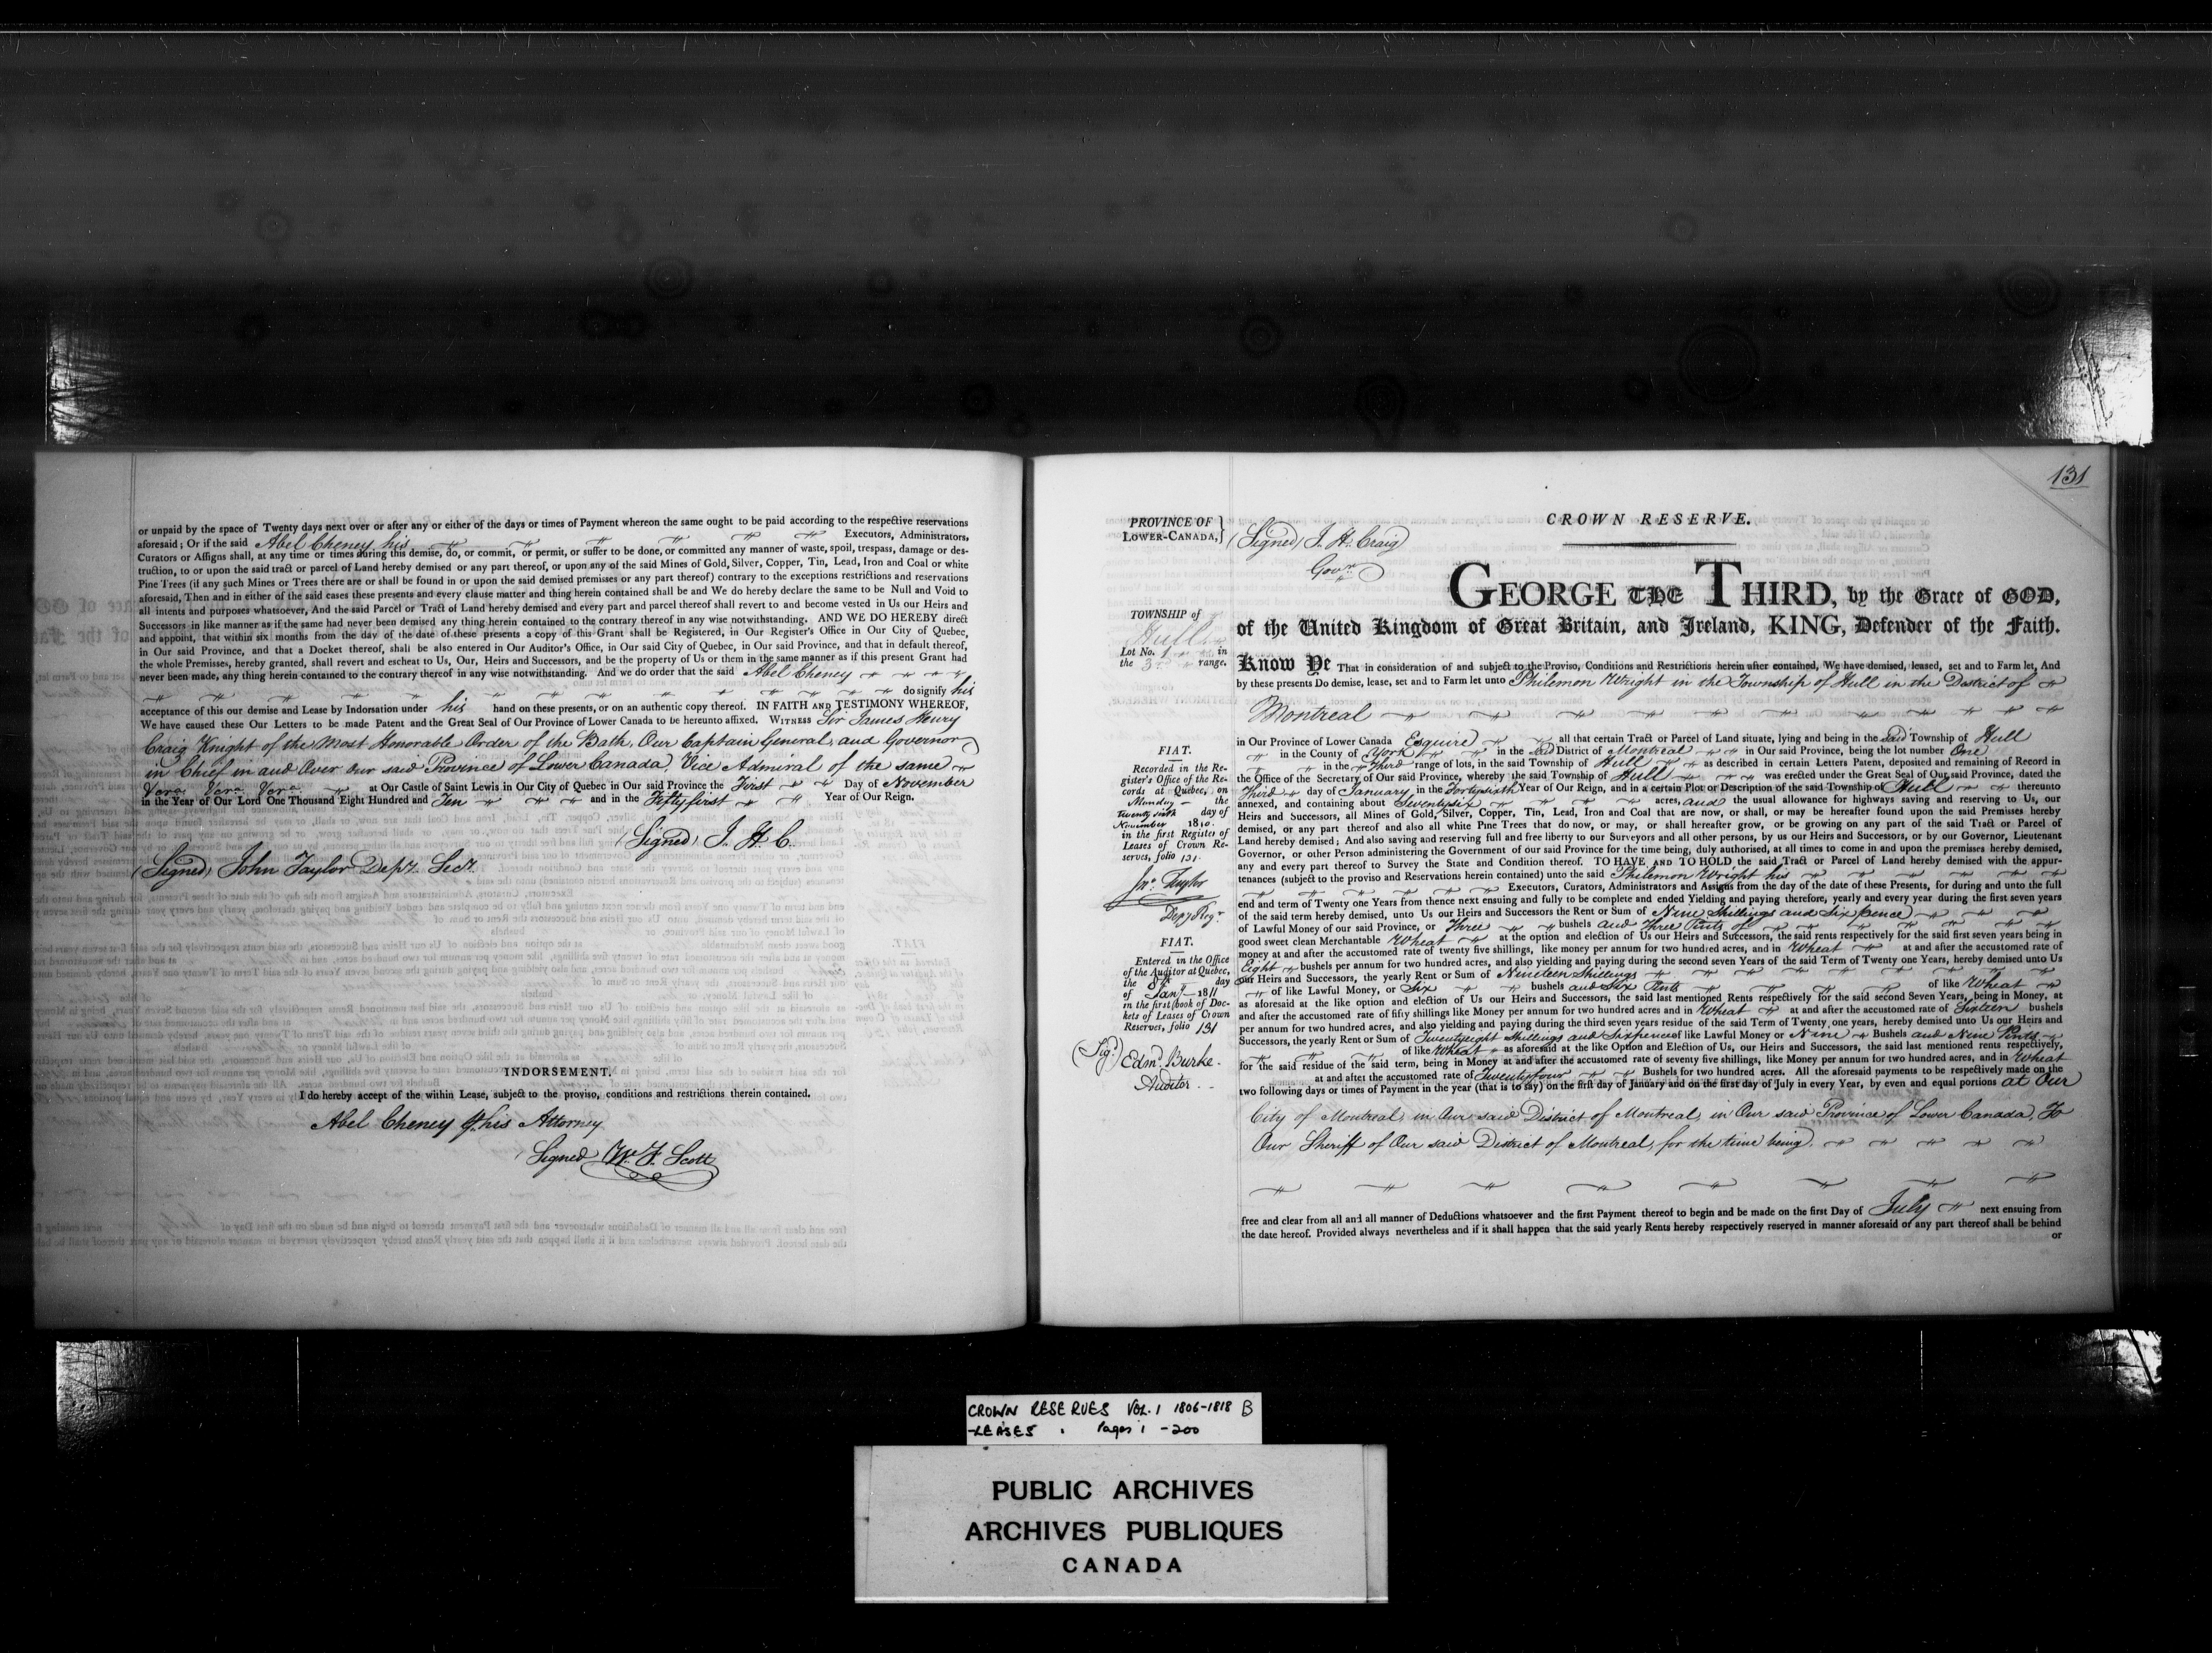 or unpaid by the space of Twenty days next over or after any or either of the days or times of Payment whereon the same ought to be paid according to the respective reservations
aforesaid; Or if the said Abel Cheney his Executors, Administrators,
Curators or Assigns shall, at any time or times during this demise, do, or commit, or permit, or suffer to be done, or committed any manner of waste, spoil, trespass, damage or des-
truction, to or upon the said tract or parcel of Land hereby demised or any part thereof, or upon any of the said Mines of Gold, Silver, Copper, Tin, Lead, Iron and Coal or white
Pine Trees (if any such Mines or Trees there are or shall be found in or upon the said demised premises or any part thereof) contrary to the exceptions restrictions and reservations
aforesaid, Then and in either of the said cases these presents and every clause matter and thing herein contained shall be and We do hereby declare the same to be Null and Void to
all intents and purposes whatsoever, And the said Parcel or Tract of Land hereby demised and every part and parcel thereof shall revert to and become vested in Us our Heirs and
Successors in like manner as if the same had never been demised any thing herein contained to the contrary thereof in any wise notwithstanding. AND WE DO HEREBY direct
and appoint, that within six months from the day of the date of these presents a copy of this Grant shall be Registered, in Our Register's Office in Our City of Quebec,
in Our said Province, and that a Docket thereof, shall be also entered in Our Auditor's Office, in Our said City of Quebec, in Our said Province, and that in default thereof,
the whole Premises, hereby granted, shall revert and escheat to Us, Our, Heirs and Successors, and be the property of Us or them in the same manner as if this present Grant had
never been made, any thing herein contained to the contrary thereof in any wise notwithstanding. And we do order that the said Abel Cheney
do signify his
acceptance of this our demise and Lease by Indorsation under his hand on these presents, or on an authentic copy thereof. IN FAITH AND TESTIMONY WHEREOF,
We have caused these Our Letters to be made Patent and the Great Seal of Our Province of Lower Canada to be hereunto affixed. WITNESS Sir James Henry
Craig Knight of the Most Honorable Order of the Bath, Our Captain General, and Governor
in Chief in and Over our said Province of Lower Canada, Vice Admiral of the same
at Our Castle of Saint Lewis in Our City of Quebec in Our said Province the First Day of November
in the Year of Our Lord One Thousand Eight Hundred and Ten and in the Fifty first Year of Our Reign.
(Signed) J. H. C.
(Signed) John Taylor Depy. Secy.
INDORSEMENT.
I do hereby accept of the within Lease, subject to the proviso, conditions and restrictions therein contained.
Abel Cheney his Attorney
Signed Wm. F. Scott
131
CROWN RESERVE.
PROVINCE OF
LOWER-CANADA,
(Signed) J. H. Craig
Govr.
GEORGE THE THIRD, by the Grace of GOD,
of the United Kingdom of Great Britain, and Ireland, KING, Defender of the Faith.
TOWNSHIP of
Hull
Lot No. 1 in
the 3rd range.
Know Ye That in consideration of and subject to the Proviso, Conditions and Restrictions herein after contained, We have demised, leased, set and to Farm let, And
by these presents Do demise, lease, set and to Farm let unto Philemon Wright in the Township of Hull in the District of
Montreal
in Our Province of Lower Canada Esquire all that certain Tract or Parcel of Land situate, lying and being in the said Township of Hull
in the County of York in the said District of Montreal in Our said Province, being the lot number One
in the Third range of lots, in the said Township of Hull as described in certain Letters Patent, deposited and remaining of Record in
the Office of the Secretary of Our said Province, whereby the said Township of Hull was erected under the Great Seal of Our said Province, dated the
Third day of January in the Forty sixth Year of Our Reign, and in a certain Plot or Description of the said Township of Hull thereunto
annexed, and containing about Seventy six acres, and the usual allowance for highways saving and reserving to Us, our
Heirs and Successors, all Mines of Gold, Silver, Copper, Tin, Lead, Iron and Coal that are now, or shall, or may be hereafter found upon the said Premises hereby
demised, or any part thereof and also all white Pine Trees that do now, or may, or shall hereafter grow, or be growing on any part of the said Tract or Parcel of
Land hereby demised; And also saving and reserving full and free liberty to our Surveyors and all other persons, by us our Heirs and Successors, or by our Governor, Lieutenant
Governor, or other Person administering the Government of our said Province for the time being, duly authorised, at all times to come in and upon the premises hereby demised,
any and every part thereof to Survey the State and Condition thereof. TO HAVE AND TO HOLD the said Tract or Parcel of Land hereby demised with the appur-
tenances (subject to the proviso and Reservations herein contained) unto the said Philemon Wright his
Executors, Curators, Administrators and Assigns from the day of the date of these Presents, for during and unto the full
end and term of Twenty one Years from thence next ensuing and fully to be complete and ended Yielding and paying therefore, yearly and every year during the first seven years
of the said term hereby demised, unto Us our Heirs and Successors the Rent or Sum of Nine Shillings and Six pence
of Lawful Money of our said Province, or Three bushels and Three Pints of
good sweet clean Merchantable Wheat at the option and election of Us our Heirs and Successors, the said rents respectively for the said first seven years being in
money at and after the accustomed rate of twenty five shillings, like money per annum for two hundred acres, and in Wheat at and after the accustomed rate of
Eight bushels per annum for two hundred acres, and also yielding and paying during the second seven Years of the said Term of Twenty one Years, hereby demised unto Us
our Heirs and Successors, the yearly Rent or Sum of Nineteen Shillings
of like Lawful Money, or Six bushels and Six Pints of like Wheat
as aforesaid at the like option and election of Us our Heirs and Successors, the said last mentioned Rents respectively for the said second Seven Years, being in Money, at
and after the accustomed rate of fifty shillings like Money per annum for two hundred acres and in Wheat at and after the accustomed rate of Sixteen bushels
per annum for two hundred acres, and also yielding and paying during the third seven years residue of the said Term of Twenty one years, hereby demised unto Us our Heirs and
Successors, the yearly Rent or Sum of Twenty eight Shillings and Sixpence of like Lawful Money or Nine Bushels and Nine Pints
of like Wheat as aforesaid at the like Option and Election of Us, our Heirs and Successors, the said last mentioned rents respectively,
for the said residue of the said term, being in Money at and after the accustomed rate of seventy five shillings, like Money per annum for two hundred acres, and in Wheat
at and after the accustomed rate of Twenty four Bushels for two hundred acres. All the aforesaid payments to be respectively made on the
two following days or times of Payment in the year (that is to say) on the first day of January and on the first day of July in every Year, by even and equal portions at Our
City of Montreal, in Our said District of Montreal, in Our said Province of Lower Canada, To
Our Sheriff of Our said District of Montreal, for the time being.
free and clear from all and all manner of Deductions whatsoever and the first Payment thereof to begin and be made on the first Day of July next ensuing from
the date hereof. Provided always nevertheless and if it shall happen that the said yearly Rents hereby respectively reserved in manner aforesaid or any part thereof shall be behind
or
FIAT.
Recorded in the Re-
gister's Office of the Re-
cords at Quebec, on
Monday the
twenty sixth day of
November 1810.
in the first Register of
Leases of Crown Re-
serves, folio 131.
Jno. Taylor
Depy Regr.
FIAT.
Entered in the Office
of the Auditor at Quebec,
the 8th day
of Jany 1811
in the first book of Doc-
kets of Leases of Crown
Reserves, folio 131
(Sigd.) Edmd. Burke.
Auditor.
CROWN RESERVES VOL. 1 1806-1818 B
-LEASES Pages 1 - 200
PUBLIC ARCHIVES
ARCHIVES PUBLIQUES
CANADA